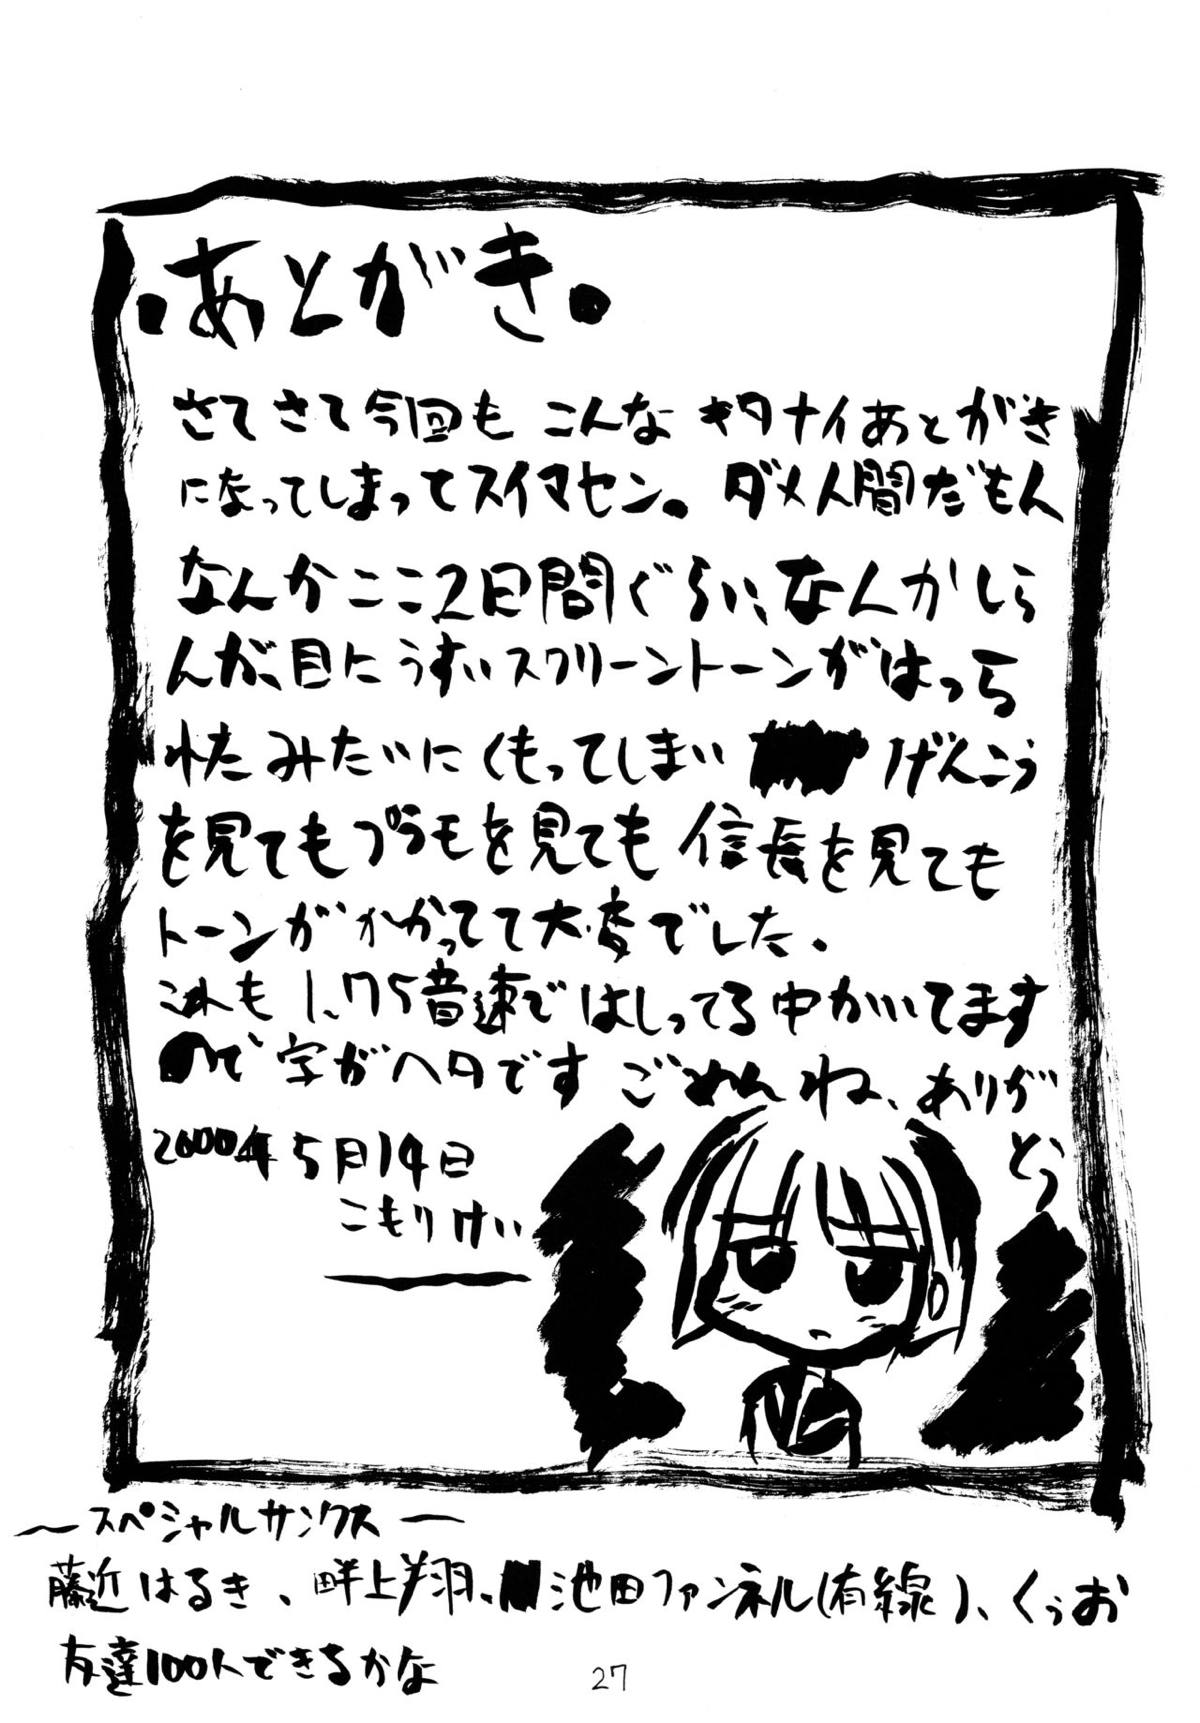 .あとがき.
さてさて今回も こんな キタナイあとがき
になってしまってスイマセン。 ダメ人間だもん
なんかここ2日間ぐらい、なんかしら
んが、目にうすいスクリーントーンがはっら
れたみたいにくもってしまい げんこう
を見てもプラモを見ても 信長を見ても
トーンがかかってて大変でした.
これも 1.75音速ではしってる中かいてます
ので 字がヘタです ごめんね、ありが
とう
2000年 5月14日
こもりけい
〜スペシャルサンクス〜
藤近はるき、畔上翔、池田ファンネル(有線)、くぅお
友達100人できるかな
27